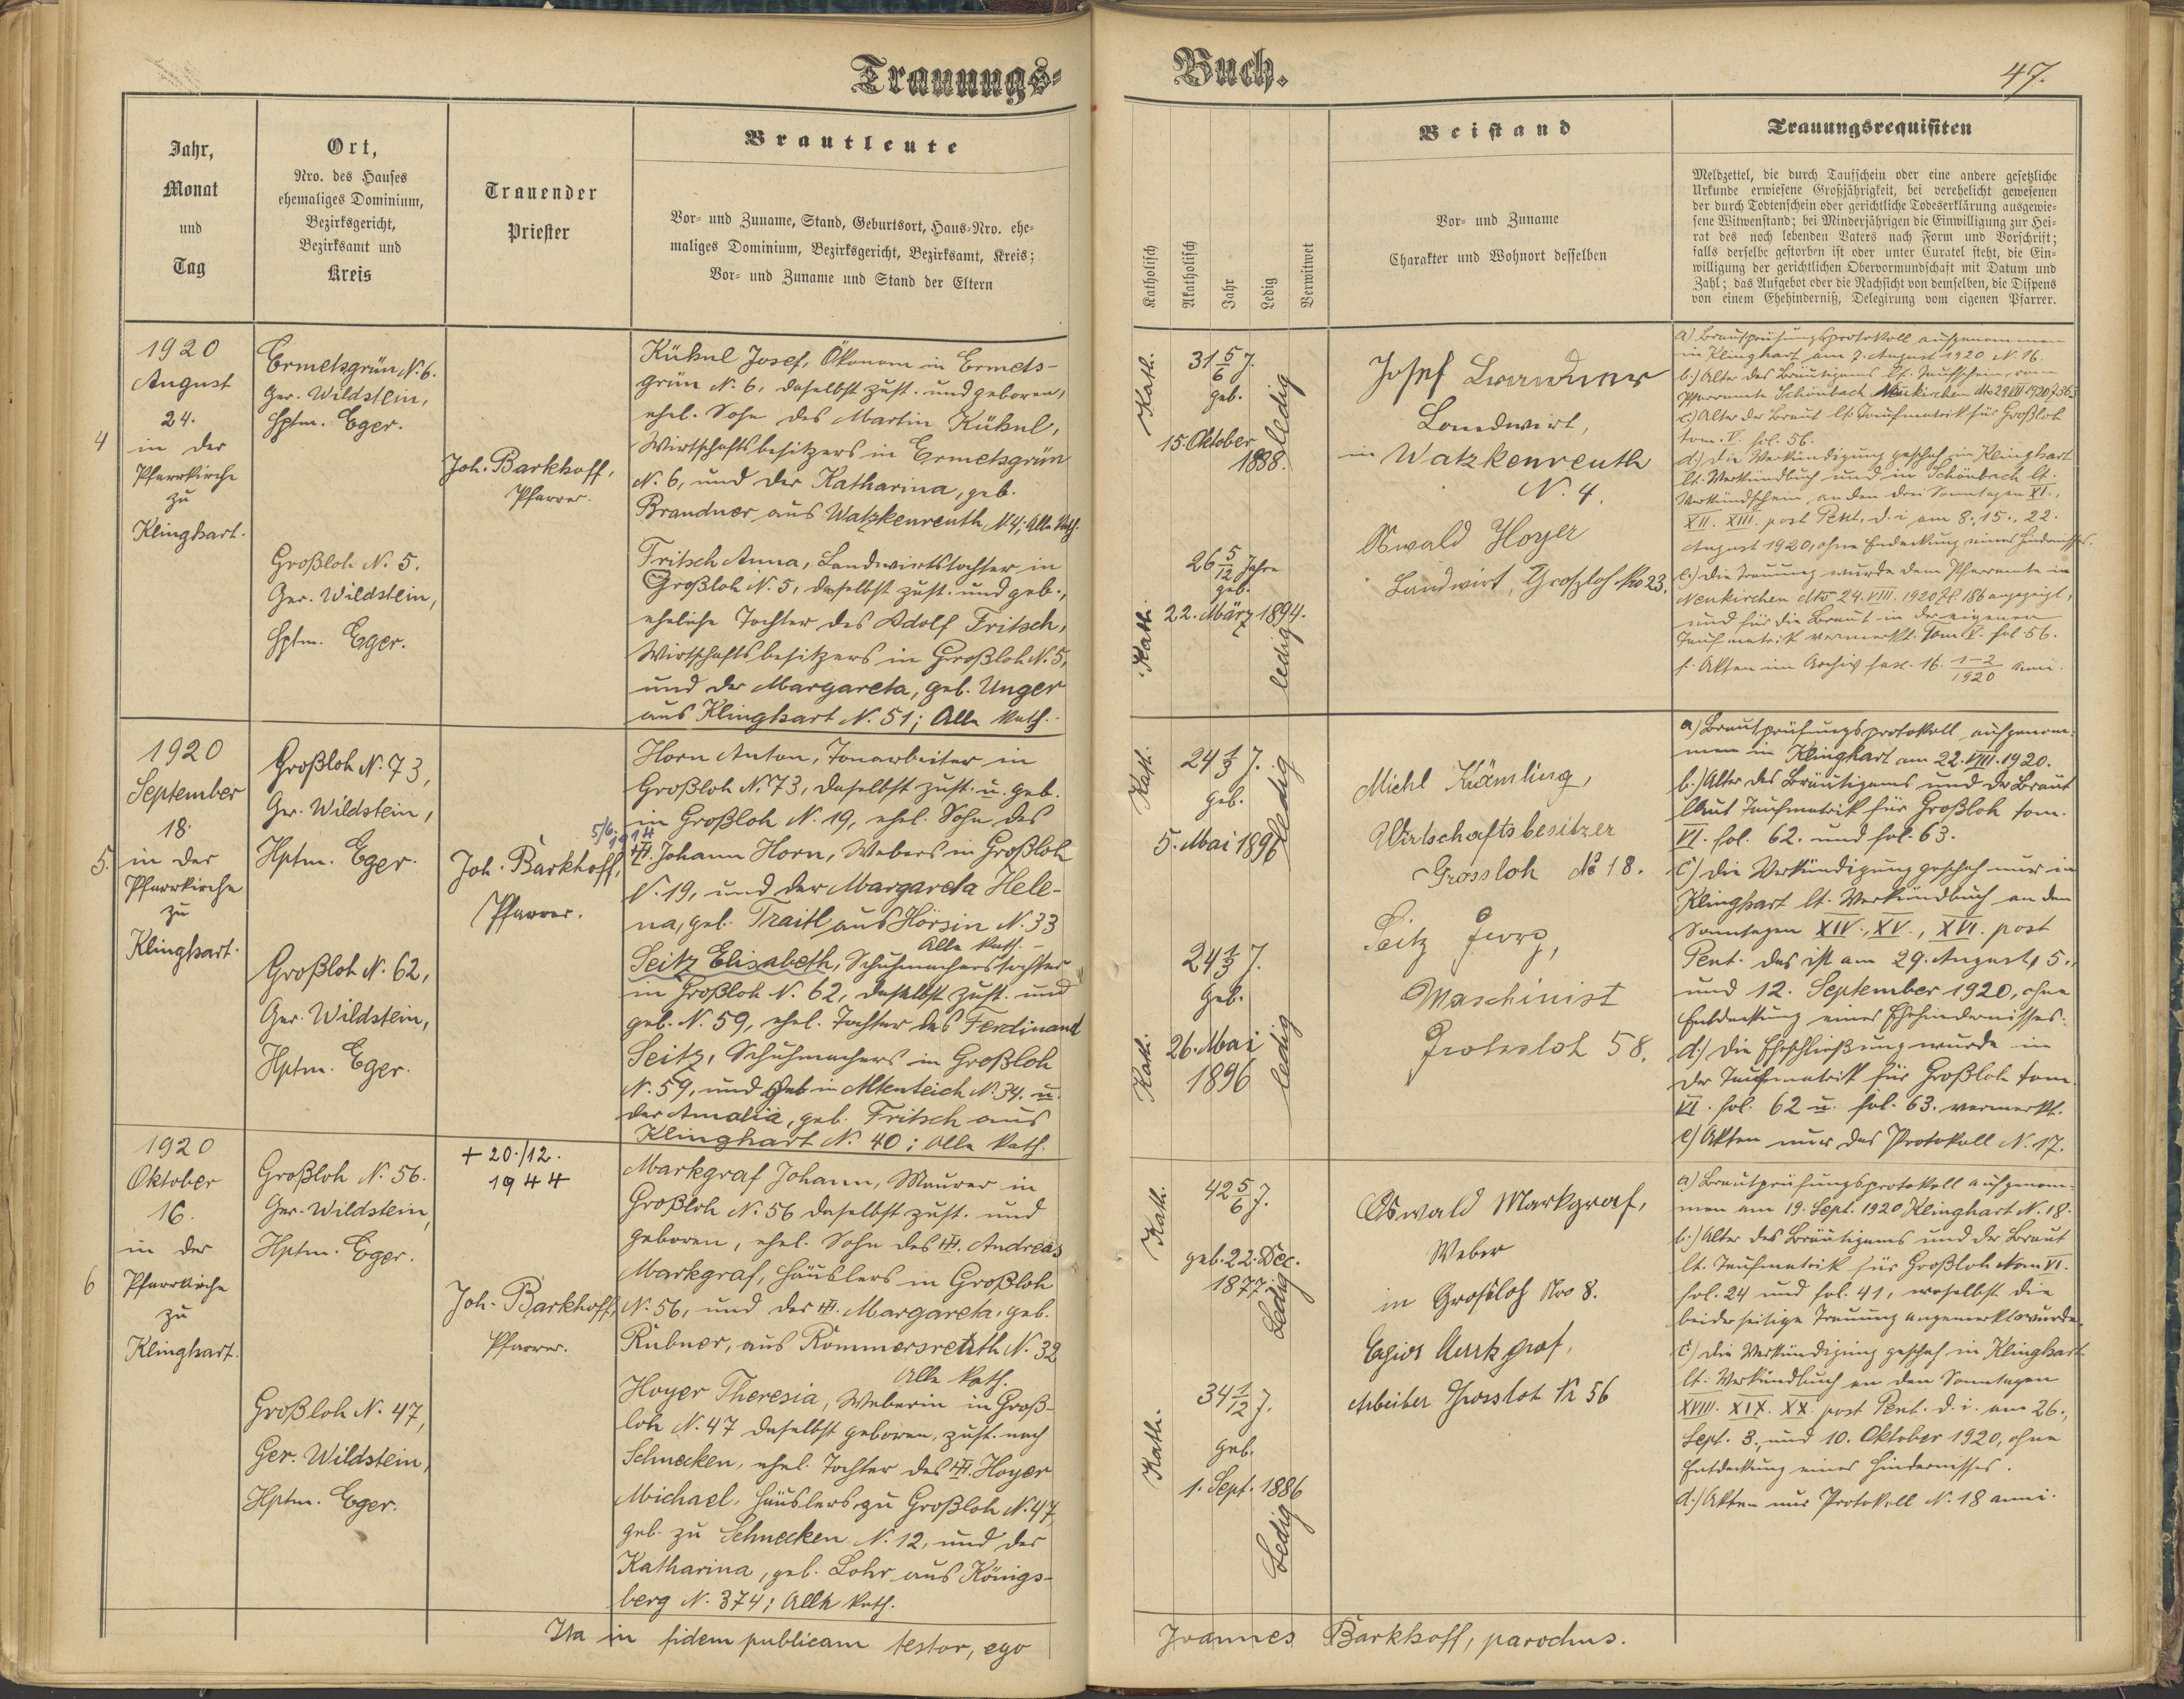 Trauungs-
Jahr,
Monat
und
Tag
Ort,
Nro. des Hauses
ehemaliges Dominium,
Bezirksgericht,
Bezirksamt und
Kreis
Trauender
Priester
Brautleute
Vor- und Zuname, Stand, Geburtsort, Haus-Nro. ehe-
maliges Dominium, Bezirksgericht, Bezirksamt, Kreis;
Vor- und Zuname und Stand der Eltern
4
1920
August
24.
in der
Pfarrkirche
zu
Klinghart.
Ermetsgrün N. 6.
Ger. Wildstein,
Hptm. Eger.
Großloh N. 5.
Ger. Wildstein,
Hptm. Eger.
Joh. Barkhoff,
Pfarrer.
Kühnl Josef, Ökonom in Ermets-
grün N. 6, daselbst zust. und geboren,
ehel. Sohn des Martin Kühnl,
Wirtschaftsbesitzers in Ermetsgrün
N. 6, und der Katharina, geb.
Brandner aus Watzkenreuth N 4; Alle kath.
Fritsch Anna, Landwirtstochter in
Großloh N. 5, daselbst zust. und geb.,
eheliche Tochter des Adolf Fritsch,
Wirtschaftsbesitzers in Großloh N. 5,
und der Margareta, geb. Unger
aus Klinghart N. 51; Alle kath.
5.
1920
September
18.
in der
Pfarrkirche
zu
Klinghart.
Großloh N. 73,
Ger. Wildstein,
Hptm. Eger.
Großloh N. 62,
Ger. Wildstein,
Hptm. Eger.
Joh. Barkhoff,
Pfarrer.
Horn Anton, Tonarbeiter in
Großloh N. 73, daselbst zust. u. geb.
in Großloh N. 19, ehel. Sohn des
5/6. 1914
Johann Horn, Webers in Großloh
N. 19, und der Margareta Hele-
na, geb. Traitl aus Hörsin N. 33
Alle kath. -
Seitz Elisabeth, Schuhmacherstochter
in Großloh N. 62, daselbst zust. und
geb. N. 59, ehel. Tochter des Ferdinand
Seitz, Schuhmachers in Großloh
N. 59, und geb in Altenteich N. 34. u.
der Amalia, geb. Fritsch aus
Klinghart N. 40; Alle kath.
6
1920
Oktober
16.
in der
Pfarrkirche
zu
Klinghart.
Großloh N. 56.
Ger. Wildstein,
Hptm. Eger.
Großloh N. 47,
Ger. Wildstein,
Hptm. Eger.
+ 20./12.
1944
Joh. Barkhoff,
Pfarrer.
Markgraf Johann, Maurer in
Großloh N. 56 daselbst zust. und
geboren, ehel. Sohn des Andreas
Markgraf, Häuslers in Großloh
N. 56, und der Margareta, geb.
Rubner, aus Rommersreuth N. 32
Alle kath.
Hoyer Theresia, Weberin in Groß-
loh N. 47 daselbst geboren, zust. nach
Schnecken, ehel. Tochter des Hoyer
Michael, Häuslers zu Großloh N. 47,
geb. zu Schnecken N. 12, und der
Katharina, geb. Lohr aus Königs-
berg N. 374; Alle kath.
Ita in fidem publicam testor, ego
Buch.
47.
Katholisch
Akatholisch
Jahr
Ledig
Verwitwet
Beistand
Vor- und Zuname
Charakter und Wohnort desselben
Trauungsrequisiten
Meldzettel, die durch Taufschein oder eine andere gesetzliche
Urkunde erwiesene Großjährigkeit, bei verehelicht gewesenen
der durch Todtenschein oder gerichtliche Todeserklärung ausgewie-
sene Witwenstand; bei Minderjährigen die Einwilligung zur Hei-
rat des noch lebenden Vaters nach Form und Vorschrift;
falls derselbe gestorben ist oder unter Curatel steht, die Ein-
willigung der gerichtlichen Obervormundschaft mit Datum und
Zahl; das Aufgebot oder die Nachsicht von demselben, die Dispens
von einem Ehehinderniß, Delegirung vom eigenen Pfarrer.
Kath.
31 5/6 J.
geb.
15. Oktober
1888.
ledig
Kath.
26 5/12 Jahre
geb.
22. März 1894.
ledig
Josef Brandner
Landwirt,
in Watzkenreuth
N. 4.
Oswald Hoyer
Landwirt, Grossloh No 23.
a) Brautprüfungsprotokoll aufgenommen
in Klinghart am 7. August 1920 N. 16.
b.) Alter des Bräutigams lt. Taufschein vom
Pfarramte Schönbach Neukirchen dto 29 VII 1920 Z 363
c.) Alter der Braut lt. Taufmatrik für Großloh
tom. V. fol. 56.
d.) Die Verkündigung geschah in Klinghart
lt. Verkündbuch und in Schönbach lt.
Verkündschein an den drei Sonntagen XI.,
XII. XIII. post Pent. d. i am 8., 15., 22.
August 1920, ohne Endeckung eines Hindernisses.
e.) Die Trauung wurde dem Pfarramte in
Neukirchen dto 24. VIII. 1920 Zl. 186 angezeigt,
und für die Braut in der eigenen
Taufmatrik vermerkt. Tom V. fol 56.
f. Akten im Archiv fasc. 16. 1-2/1920 anni.
Kath.
24 1/3 J.
geb.
5. Mai 1896
ledig
Kath.
24 1/3 J.
geb.
26. Mai
1896
ledig
Michl Kämling,
Wirtschaftsbesitzer
Grossloh № 18.
Seitz Georg,
Maschinist
Grossloh 58.
a) Brautprüfungsprotokoll aufgenom-
men in Klinghart am 22. VIII. 1920.
b.) Alter des Bräutigams und der Braut
laut Taufmatrik für Großloh tom.
VI. fol. 62. und fol. 63.
c) Die Verkündigung geschah nur in
Klinghart lt. Verkündbuch an den
Sonntagen XIV., XV., XVI. post
Pent. das ist am 29. August, 5.,
und 12. September 1920, ohne
Entdeckung eines Ehehindernisses.
d.) Die Eheschließung wurde in
der Taufmatrik für Großloh tom.
VI. fol. 62 u. fol. 63. vermerkt.
e) Akten nur das Protokoll N. 17.
Kath.
42 5/6 J.
geb. 22. Dec.
1877.
Ledig
Kath.
34 1/12 J.
geb.
1. Sept. 1886
Ledig
Oswald Markgraf,
Weber
in Grossloh Nro 8.
Markgraf,
Arbeiter Grossloh Nr 56
a) Brautprüfungsprotokoll aufgenom-
men am 19. Sept. 1920 Klinghart N. 18.
b.) Alter des Bräutigams und der Braut
lt. Taufmatrik für Großloh tom VI.
fol. 24 und fol. 41, woselbst die
beiderseitige Trauung angemerkt wurde.
c) Die Verkündigung geschah in Klinghart
lt. Verkündbuch an den Sonntagen
XVIII. XIX. XX. post Pent. d. i. am 26.,
Sept. 3., und 10. Oktober 1920, ohne
Entdeckung eines Hindernisses.
d.) Akten nur Protokoll N. 18 anni.
Joannes Barkhoff, parochus.